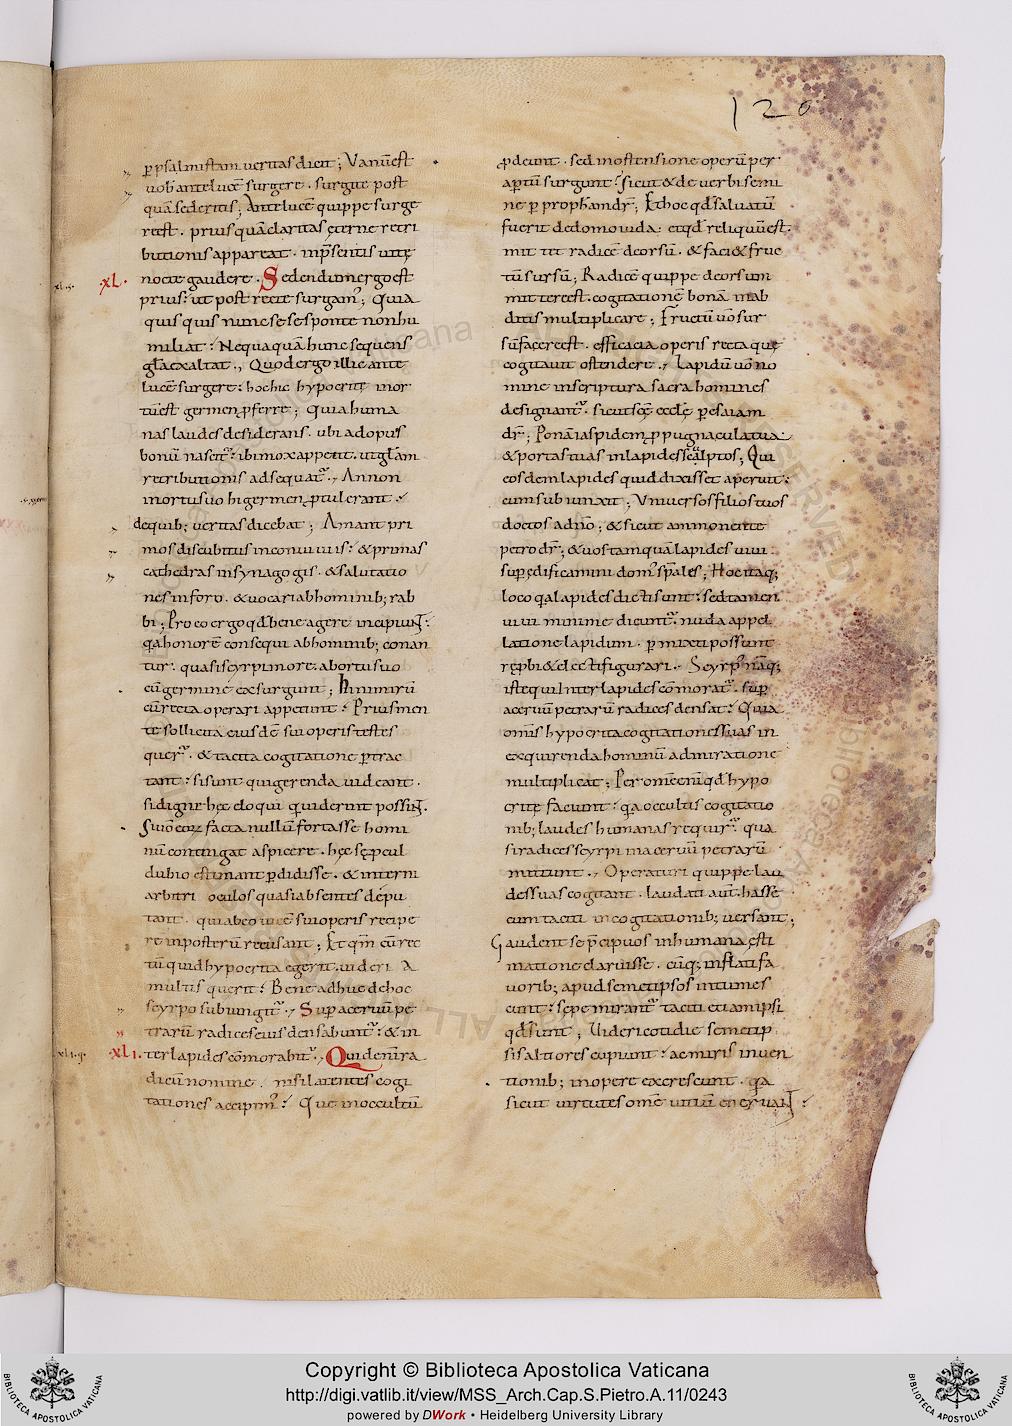 120
p psalmistam veritas dicit; Vanū est
uob ante lucē surgere. surgite post
quā sederitis; Ante lucē quippe surge
re est. prius quā claritas ęterne retri
butionis appareat. in p̄sentis uitę
.XL. nocte gaudere. Sedendum ergo est
prius: ut post recte surgam; Quia
quisquis nunc sese sponte non hu
miliat: Nequaquā hunc sequens
gl̄a exaltat., Quod ergo illic ante
lucē surgere: hoc hic hypocritę mor
tuū est germen pferre; Quia huma
nas laudes desiderans. ubi ad opus
bonū nascit: ibi mox appetit. ut gl̄am
retributionis adsequat., An non
in ortu suo hi germen ptulerant:
de quib; veritas dicebat; Amant pri
mos discubitus in conuiuiis: & primas
cathedras in synagogis. & salutatio
nes in foro. & uocari ab hominib; rab
bi; Pro eo ergo qđ bene agere incipiunt:
qa honorē consequi ab hominib; conan
tur. quasi scyrpi more. ab ortu suo
cū germine exsurgunt; Hi nimirū
cū recta operari appetunt: Prius men
te sollicita eiusdē sui operis testes
quer. & tacita cogitatione ptrac
tant: si sunt qui gerenda uideant.
si digne hęc eloqui qui uiderint possunt.
Si uō eorum facta nullū fortasse homi
nū contingat aspicere. hęc se pcul
dubio estimant pdidisse. & interni
arbitri oculos quasi absentes depu
tant. qui ab eo uicē sui operis recipe
re in posterū recusant; Et qm̄ cū rec
tū quid hypocrita egerit. uideri a
multis querit: Bene adhuc de hoc
scyrpo subiungit., Sup aceruū pe
trarū radices eius densabunt: & in
.XLI. ter lapides cōmorabit., Quid enim ra
dicū nomine. nisi latentes cogi
tationes accipim: Que in occultū
pdeunt. sed in ostensione operū per
aptū surgunt: sicut & de uerbi semi
ne p prophetam dr; Et hoc qđ saluatū
fuerit de domo iuda: et qđ reliquū est.
mittet radicē deorsū. & faci& fruc
tū sursū; Radicē quippe deorsum
mittere est. cogitationē bonā in ab
ditis multiplicare; Fructū uō sur
sū facere est. efficacia operis recta que
cogitauit ostendere., Lapidū uō no
mine in scriptura sacra homines
designant. sicut scę ecclę p esaiam
dr; Ponā iaspidem ppugnacula tua:
& portas tuas in lapides scalptos; Qui
eos dem lapides quid dixisset aperuit:
cum subiunxit; Uniuersos filios tuos
doctos a dno; & sicut ammonente
petro dr; & uos tamquā lapides uiui
supędificamini domus spales; Hoc itaq;
loco qa lapides dicti sunt: sed tamen
uiui minime dicunt. nuda appel
latione lapidum. pmixti possunt
rępbi & electi figurari., Scyrp naq;
iste qui inter lapides cōmorat. sup
aceruū petrarū radices densat: Quia
omis hypocrita cogitationes suas in
exquirenda hominū admiratione
multiplicat; Per omē enī qđ hypo
critę faciunt: qa occultis cogitatio
nib; laudes humanas requir. qua
si radices scyrpi in aceruū petrarū
mittunt., Operaturi quippe lau
des suas cogitant. laudati aut has se
cum taciti in cogitationib; uersant;
Gaudent se pcipuos in humana ęsti
matione claruisse. cūq; inflati fa
uorib; apud semetipsos intumes
cunt: sępe mirant taciti etiam ipsi
qđ sunt; Uideri cotidie semetip
sis altiores cupiunt: ac miris inuen
tionib; in opere excrescunt. qa
sicut uirtutes omē uitiū eneruant:
Copyright © Biblioteca Apostolica Vaticana
http://digi.vatlib.it/view/MSS_Arch.Cap.S.Pietro.A.11/0243
powered by DWork • Heidelberg University Library